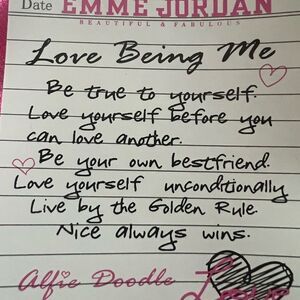 Date EMME JORDAN
BEAUTIFUL & FABULOUS
Love Being Me
Be true to yourself.
Love yourself before you
can love another.
Be your own bestfriend.
Love yourself unconditionally
Live by the Golden Rule.
Nice always wins.
Alfie Doodle